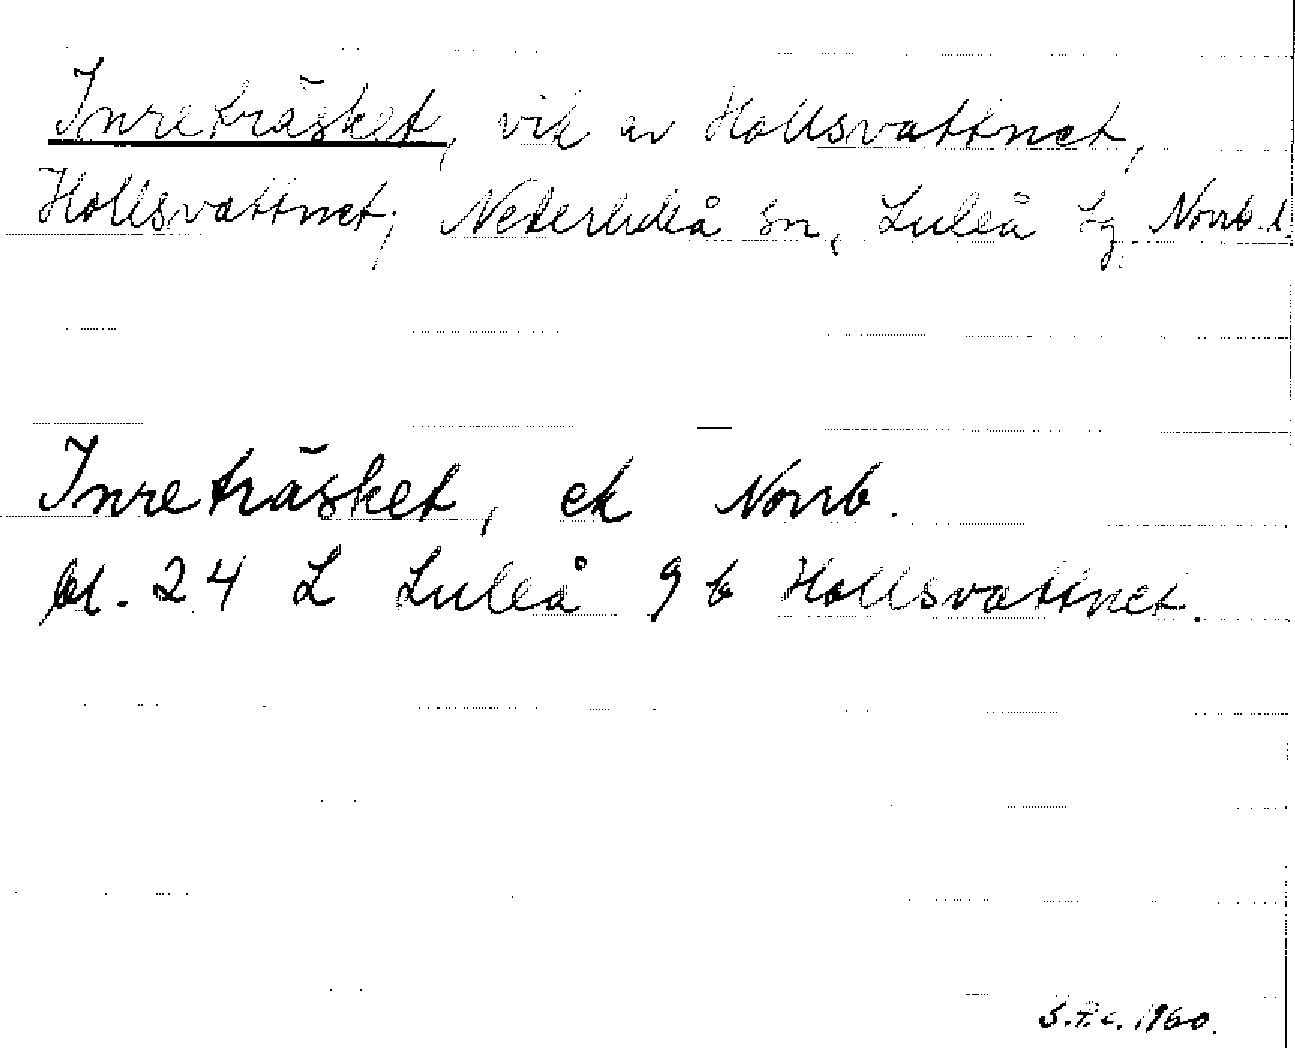 Inreträsket, vik av Hollsvattnet,
Hollsvattnet, Nederluleå sn, Luleå tg, Norrb. l.
Inreträsket, ek Norrb.
bl. 24 L Luleå 9 b Hollsvattnet.
1960.